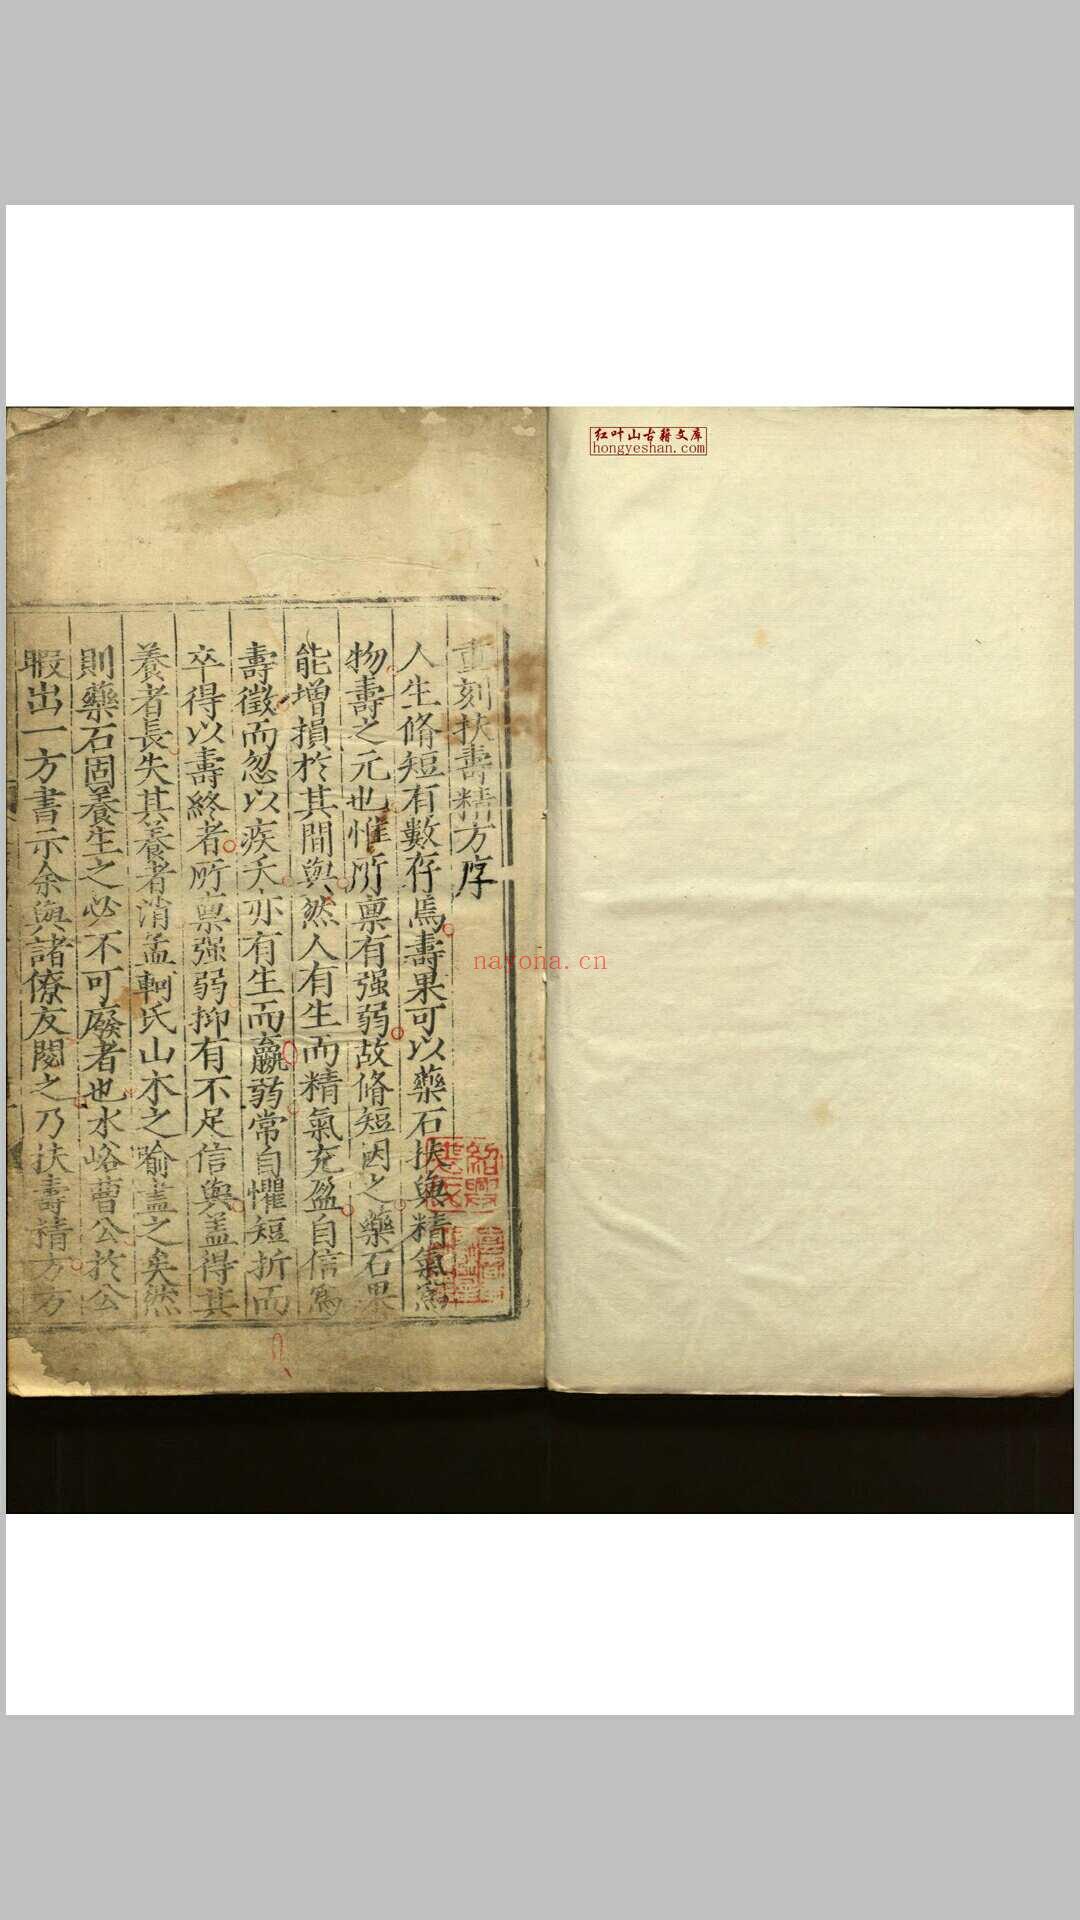 红叶山古籍文库
hongyeshan.com
重刻扶壽精方序
人生脩短有數存焉壽果可以藥石扶與精氣爲
物壽之元也惟所稟有强弱故脩短因之藥石果
能增損於其間與然人有生而精氣充盈自信爲
壽徵而忽以疾夭亦有生而羸弱常自懼短折而
卒得以壽終者所稟强弱抑有不足信與盖得其
養者長失其養者消孟軻氏山木之喻盡之矣然
則藥石固養生之必不可廢者也水峪曹公於公
暇出一方書示余與諸僚友閱之乃扶壽精方方
nayona.cn